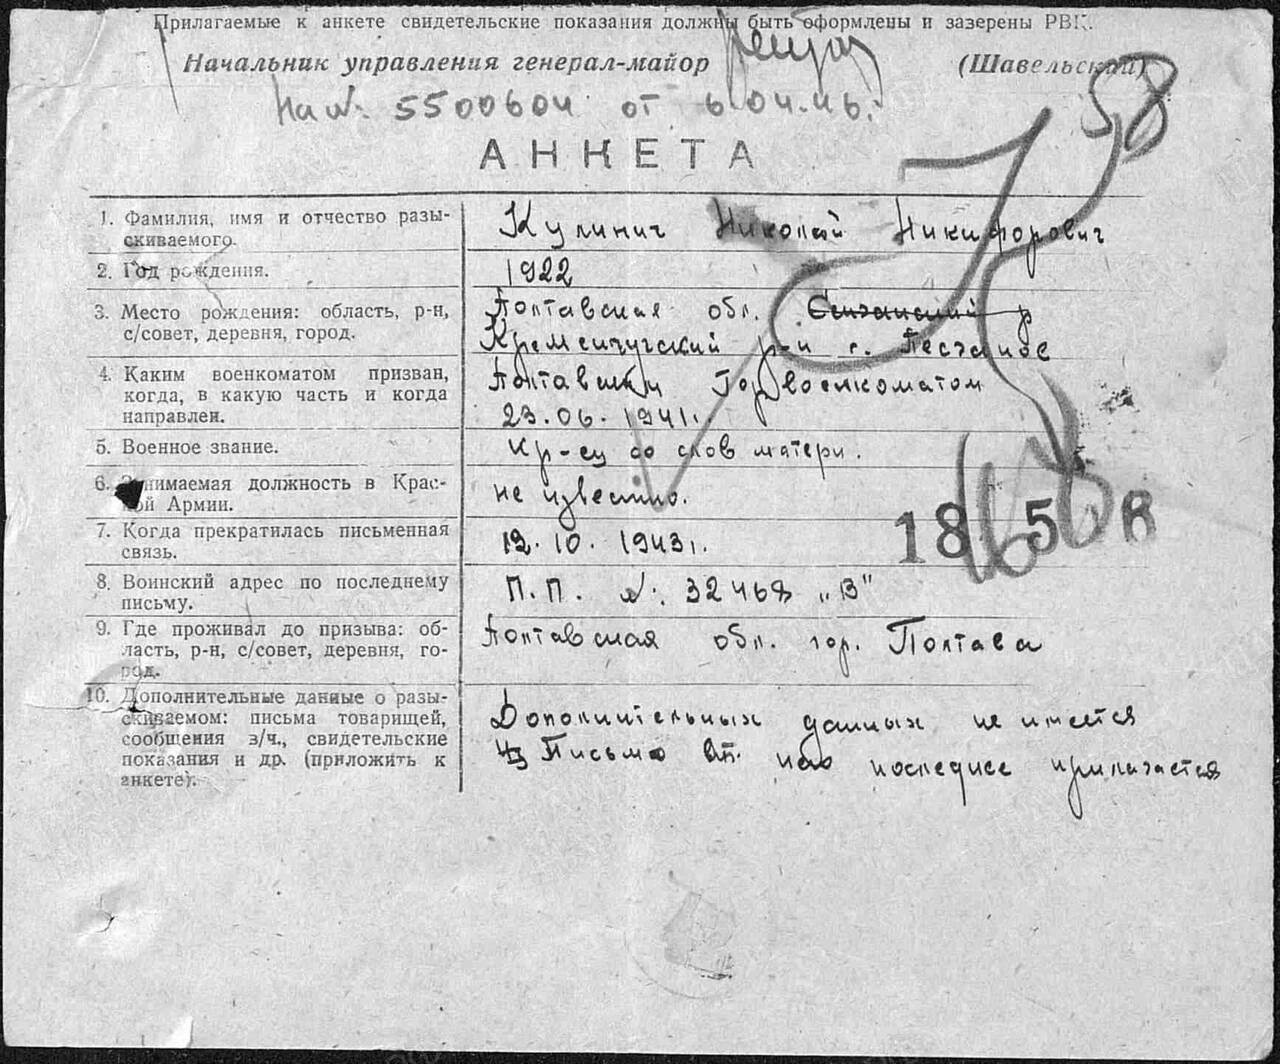 Прилагаемые к анкете свидетельские показания должны быть оформлены и заверены РВК.
Начальник управления генерал-майор (Шавельский)
На №: 5500604 от 6.04.46.
58
АНКЕТА
1. Фамилия, имя и отчество разыскиваемого.
Кулинич Николай Никифорович
2. Год рождения.
1922
3. Место рождения: область, р-н, с/совет, деревня, город.
Полтавская обл.
Кременчугский р-н с. Песчаное
4. Каким военкоматом призван, когда, в какую часть и когда направлен.
Полтавским Горвоенкоматом
23.06.1941г.
5. Военное звание.
Кр-ец со слов матери.
6. Занимаемая должность в Красной Армии.
не известно.
7. Когда прекратилась письменная связь.
12.10.1943г.
8. Воинский адрес по последнему письму.
П.П. №: 32468 „В"
9. Где проживал до призыва: область, р-н, с/совет, деревня, город.
Полтавская обл. гор. Полтава
10. Дополнительные данные о разыскиваемом: письма товарищей, сообщения з/ч., свидетельские показания и др. (приложить к анкете).
Дополнительных данных не имеется
Письмо последнее прилагается